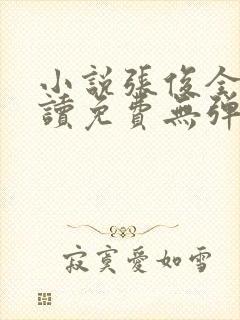 小說張俊全
讀免費無彈
寂寞愛如雪